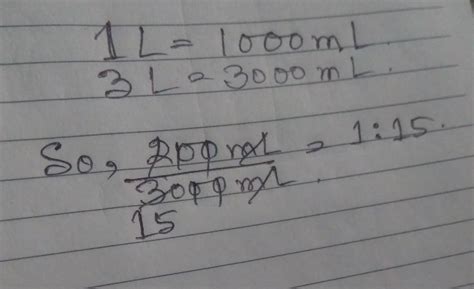 1 L = 1000 mL.
3 L = 3000 mL.
So, 200 mL / 3000 mL = 1:15.
15